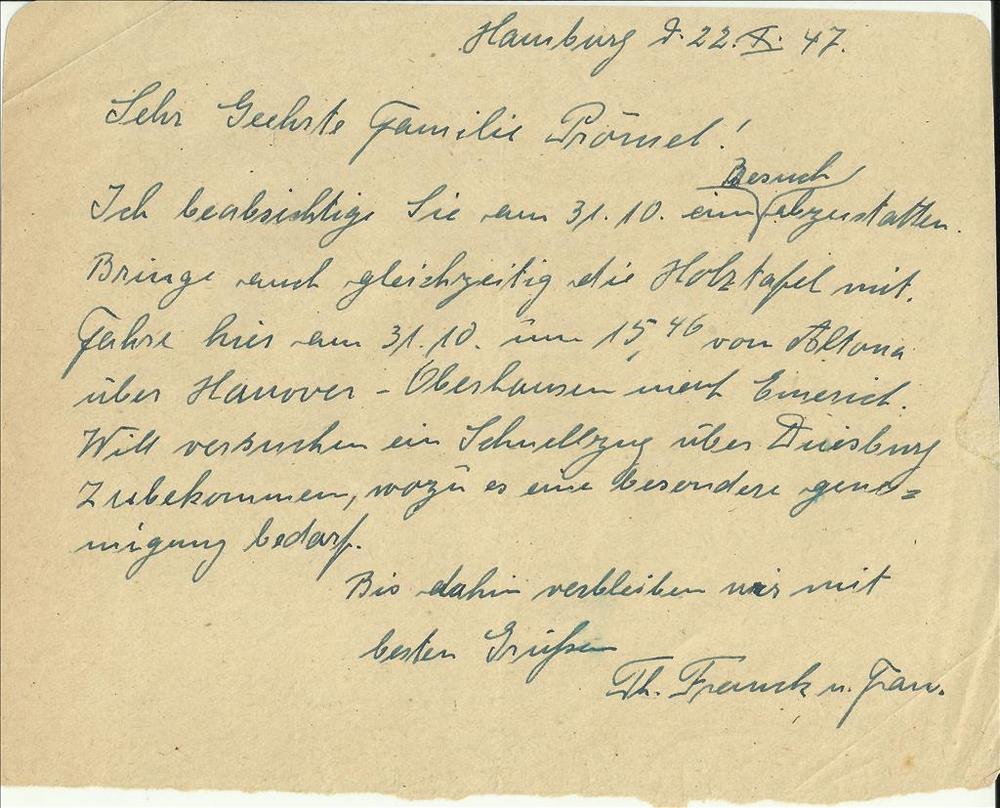 Hamburg d. 22. X. 47.
Sehr Geehrte Familie Prömel!
Besuch
Ich beabsichtige Sie am 31.10. ein abzustatten.
Bringe auch gleichzeitig die Holztafel mit.
Fahre hier am 31.10. um 15,46 von Altona
über Hanover - Oberhausen nach Emerich.
Will versuchen ein Schnellzug über Duisburg
Zubekommen, wozu es eine besondere geneh=
migung bedarf.
Bis dahin verbleiben wir mit
besten Grüßen
Th. Franck u. Frau.